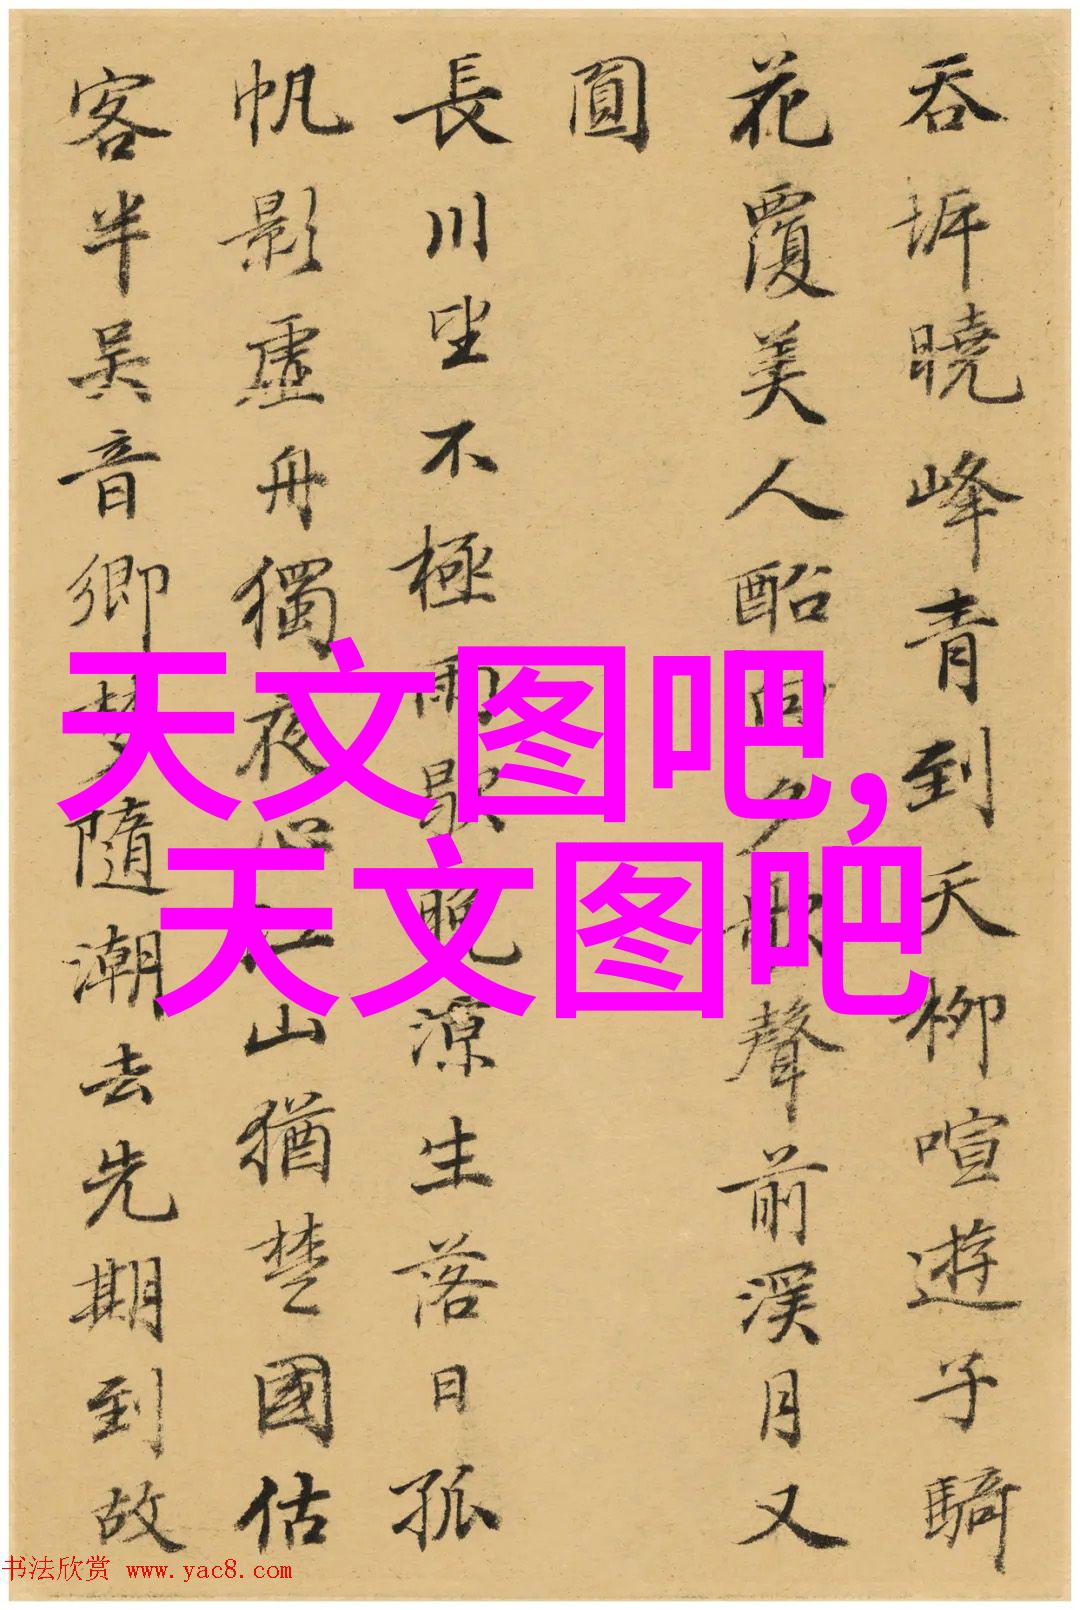 吞坼曉峰青到天柳喧遊子騎
花覆美人酩向夕歌聲前溪月又
圓
長川坐不極雨歇晚涼生落日孤
帆影虛舟獨夜心江山猶楚國估
客半吴音鄉梦隨潮去先期到故
天文图吧,
天文图吧
书法欣赏 www.yac8.com